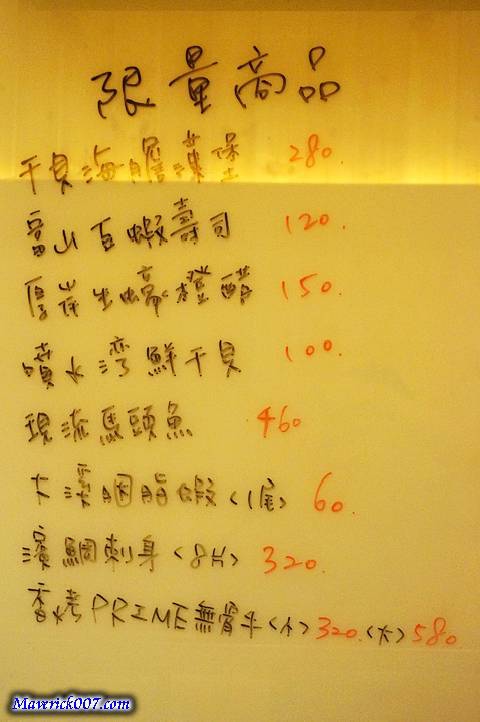 限量商品
干貝海膽漢堡 280.
富山白蝦壽司 120.
厚岸生蠔橙醋 150.
噴水湾鮮干貝 100.
現流馬頭魚 460
大溪胭脂蝦(1尾) 60.
濱鯛刺身(8片) 320.
香烤PRIME無骨牛(小)320.(大)580.
Maverick007.com